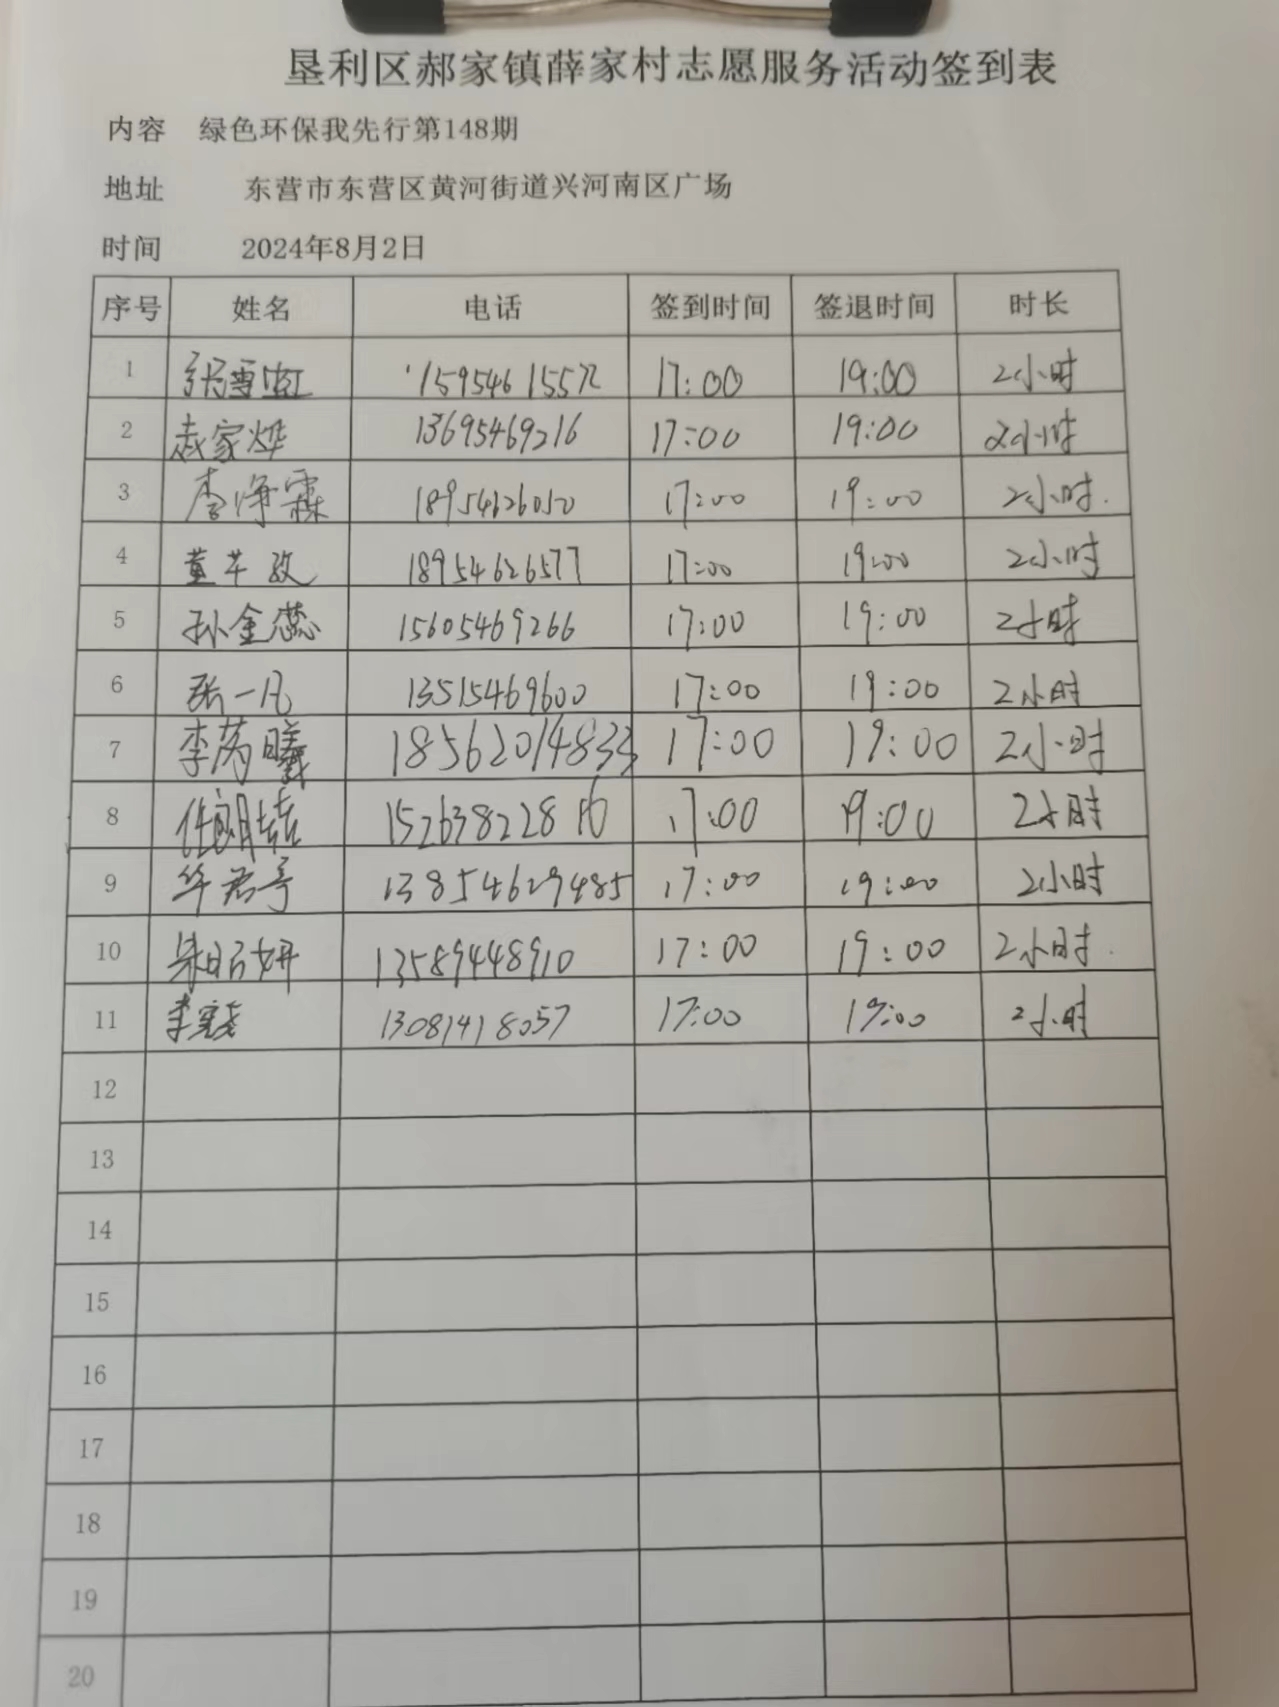 垦利区郝家镇薛家村志愿服务活动签到表
内容 绿色环保我先行第148期
地址 东营市东营区黄河街道兴河南区广场
时间 2024年8月2日
序号 姓名 电话 签到时间 签退时间 时长
1 张雪虹 17:00 19:00 2小时
2 家烨 13695469216 17:00 19:00 2小时
3 李净霖 18954626050 17:00 19:00 2小时.
4 董芊孜 18954626577 17:00 19:00 2小时
5 孙金蕊 15605469266 17:00 19:00 2小时
6 张一凡 13515469600 17:00 19:00 2小时
7 李芮曦 18562014833 17:00 19:00 2小时
8 任朗喆 15263822816 17:00 19:00 2小时
9 华君 13854629485 17:00 19:00 2小时
10 朱昭妍 13589448910 17:00 19:00 2小时.
11 李 13081418057 17:00 19:00 2小时
12
13
14
15
16
17
18
19
20